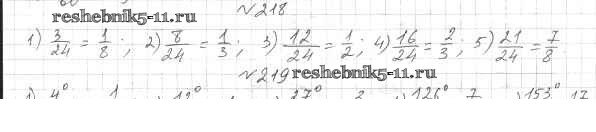 №218
reshebnik5-11.ru
1) 3/24 = 1/8; 2) 8/24 = 1/3; 3) 12/24 = 1/2; 4) 16/24 = 2/3; 5) 21/24 = 7/8.
№219 reshebnik5-11.ru
4° 1 27° 2 126° 7 153° 17